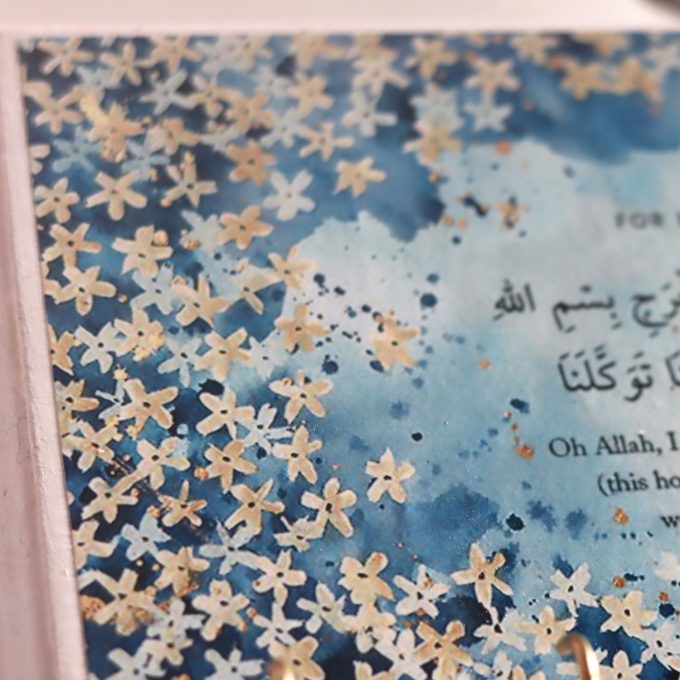 FOR
بِسْمِ اللهِ
تَوَكَّلَنَا
Oh Allah, I
(this ho
w